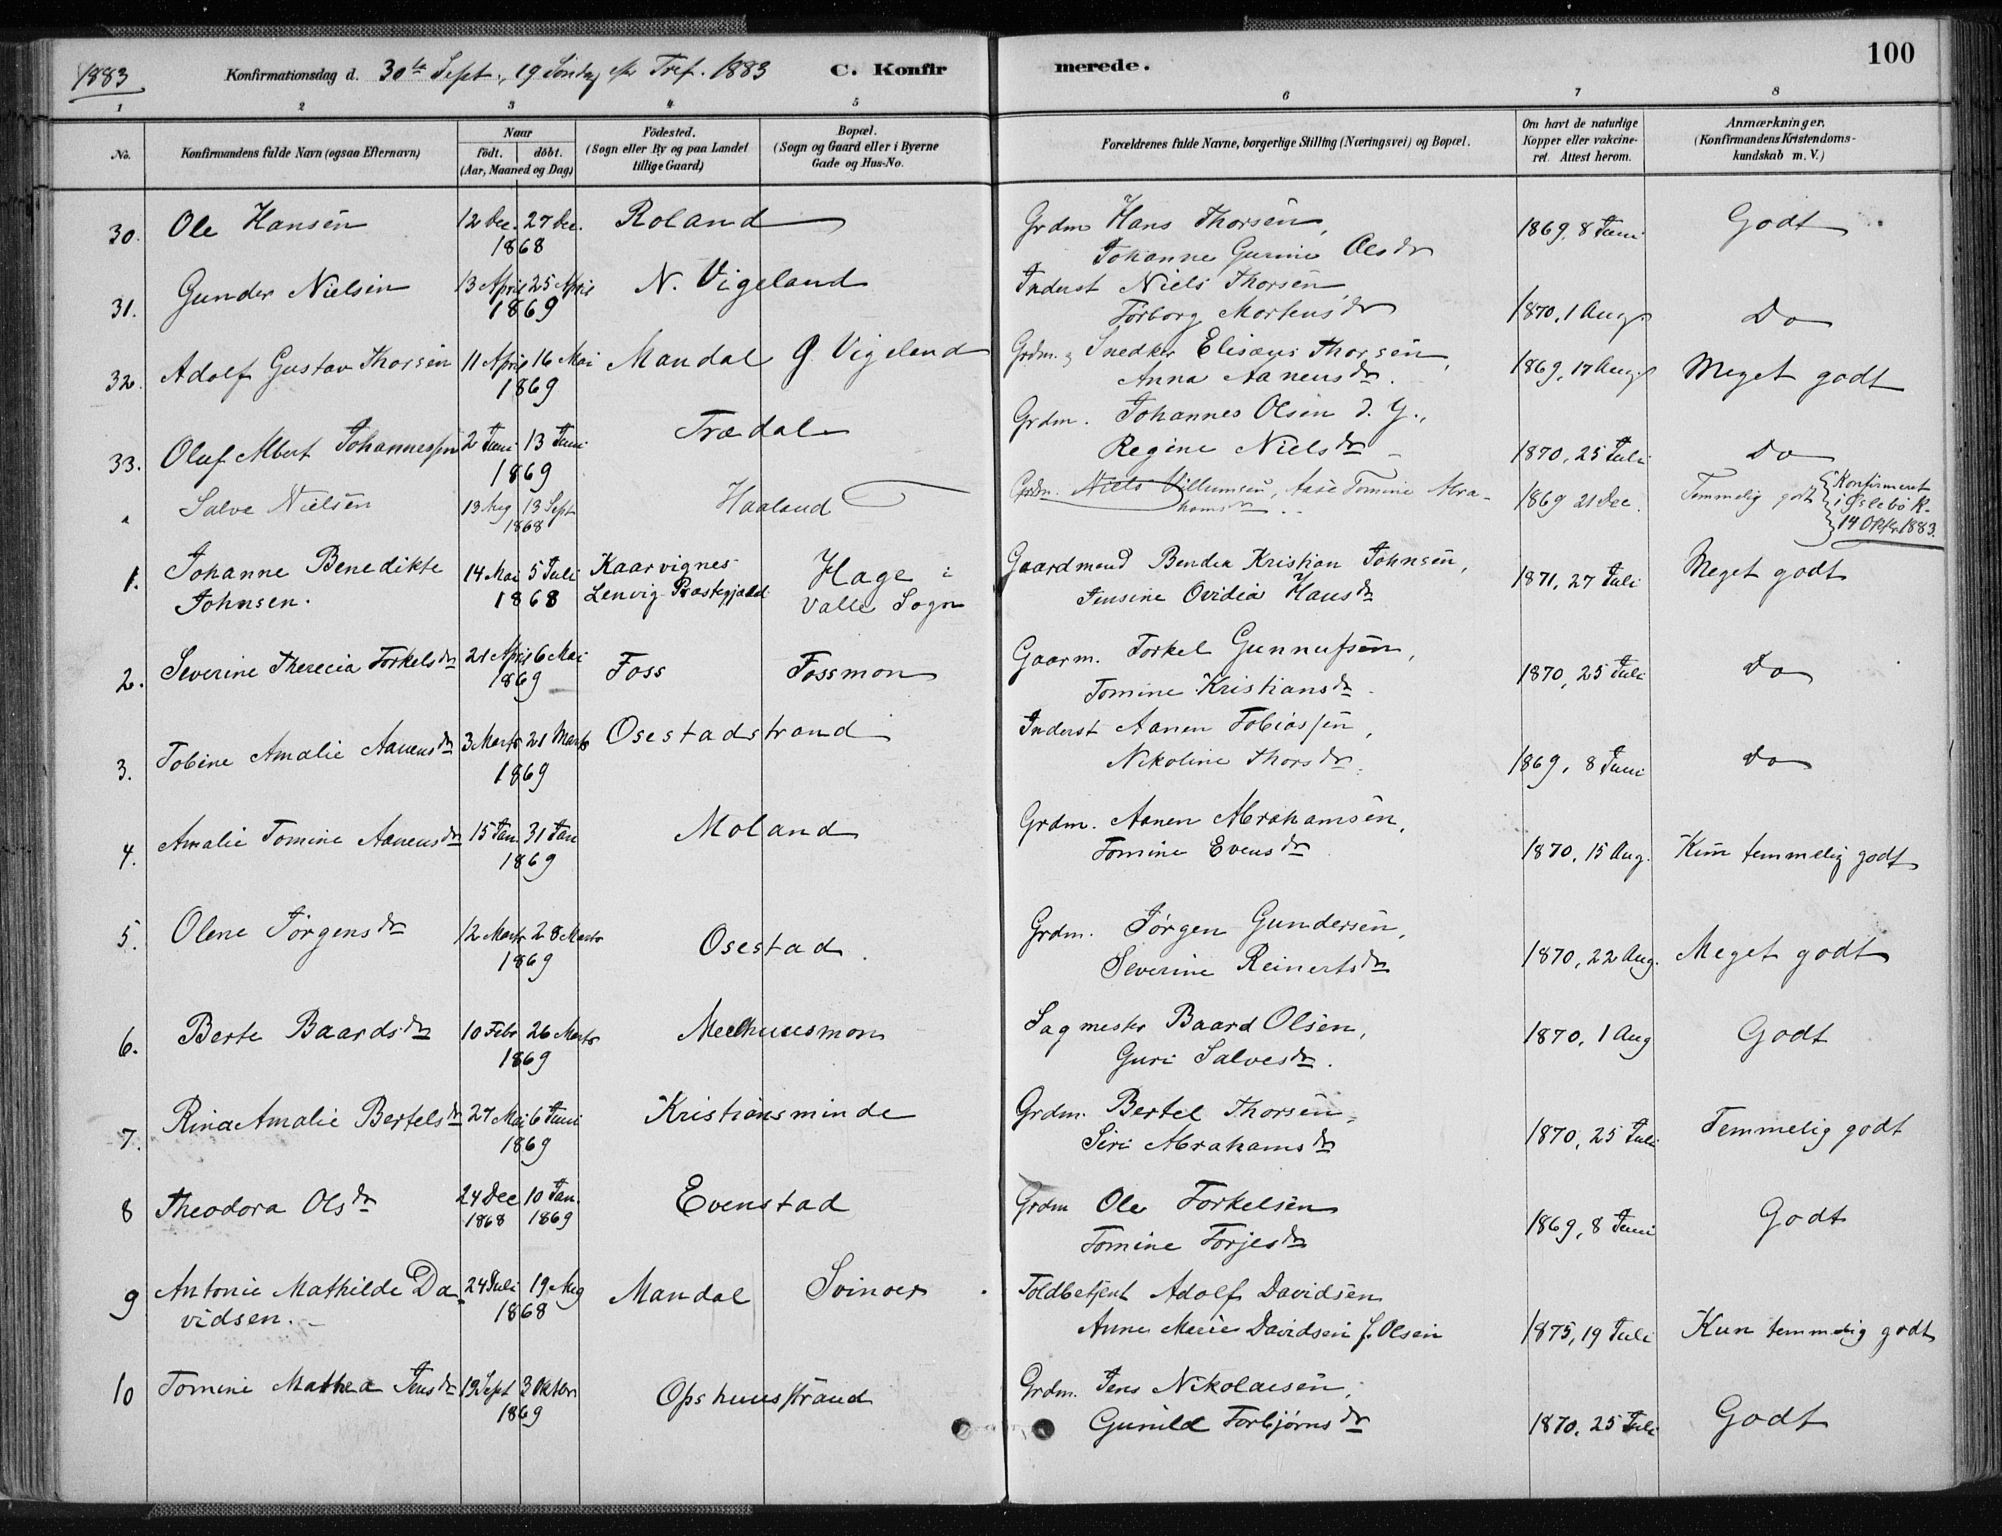 1883 Konfirmationsdag d. 30te Sept., 19 Söndag eft. Tref. 1883 C. Konfirmerede. 100
1 2 3 4 5 6 7 8
No. Konfirmandens fulde Navn (ogsaa Efternavn) Naar födt. döbt. (Aar, Maaned og Dag) Födested. (Sogn eller By og paa Landet tillige Gaard) Bopæl. (Sogn og Gaard eller i Byerne Gade og Hus-No. Forældrenes fulde Navne, borgerlige Stilling (Næringsvei) og Bopæl. Om havt de naturlige Kopper eller vakcineret. Attest herom. Anmærkninger. (Konfirmandens Kristendomskundskab m. V.)
30. Ole Hansen 12 Dec. 27 Dec. 1868 Roland Grdm Hans Thorsen, 1869, 8 Juni Godt
Johanne Gurine Olsdr
31. Gunder Nielsen 13 April 25 April 1869 N. Vigeland Inderst Niels Thorsen, 1870, 1 Aug. Do
Torborg Mortensdr
32. Adolf Gustav Thorsen 11 April 16 Mai 1869 Mandal G. Vigeland Grdm. & Snedker Elisæus Thorsen, 1869, 17 Aug. Meget godt
Anna Aanensdr.
33. Oluf Albert Johannessen 2 Juni 13 Juni 1869 Trædal Grdm. Johannes Olsen d. Y., 1870, 25 Juli Do
Regine Nielsdr
Salve Nielsen 13 Aug 13 Sept 1868 Haaland Grdm. Niels Villumsen, Aase Tomine Abra- 1869 21 Dec. Temmelig godt Konfirmeret
hamsdr i Øslebö K.
14 Oktr 1883.
1. Johanne Benedikte 14 Mai 5 Juli Kaarvignes Hage i Gaardmand Bendix Kristian Johnsen, 1871, 27 Juli Meget godt
Johnsen. 1868 Lenvig Præstegjæld Valle Sogn Jensine Ovidia Hansdr
2. Severine Therecia Torkelsdr 21 April 6 Mai 1869 Foss Fossmon Gaarm. Torkel Gunnufsen, 1870, 25 Juli Do
Tomine Kristiansdr
3. Tobine Amalie Aanensdr 3 Marts 21 Marts 1869 Osestadstrand Inderst Aanen Tobiassen, 1869, 8 Juni Do
Nikoline Thorsdr.
4. Amalie Tomine Aanensdr 15 Jan 31 Jan 1869 Moland Grdm. Aanen Abrahamsen, 1870, 15 Aug. Kun temmelig godt
Tomine Evensdr
5. Olene Jörgensdr 12 Marts 28 Marts 1869 Osestad. Grdm. Jørgen Gundersen, 1870, 22 Aug. Meget godt
Severine Reinertsdr
6. Berte Baardsdr 10 Febr 26 Marts 1869 Meelhuusmon Sagmester Baard Olsen, 1870, 1 Aug Godt
Guri Salvesdr.
7. Rina Amalie Bertelsdr 27 Mai 6 Juni 1869 Kristiansminde Grdm. Bertel Thorsen, 1870, 25 Juli Temmelig godt
Siri Abrahamsdr
8 Theodora Olsdr 24 Dec 1868 10 Jan. 1869 Evenstad Grdm Ole Torkelsen 1869, 8 Juni Godt
Tomine Torjesdr
9 Antonie Mathilde Da- 24 Juli 19 Aug 1868 Mandal Svinoer. Toldbetjent Adolf Davidsen 1875, 19 Juli Kun temmelig godt
vidsen. Anne Marie Davidsen f. Olsen
10 Tomine Mathea Jensdr 19 Sept 3 Oktbr 1869 Opshuusstrand Grdm. Jens Nikolaisen, 1870, 25 Juli Godt
Gunild Torbjørnsdr